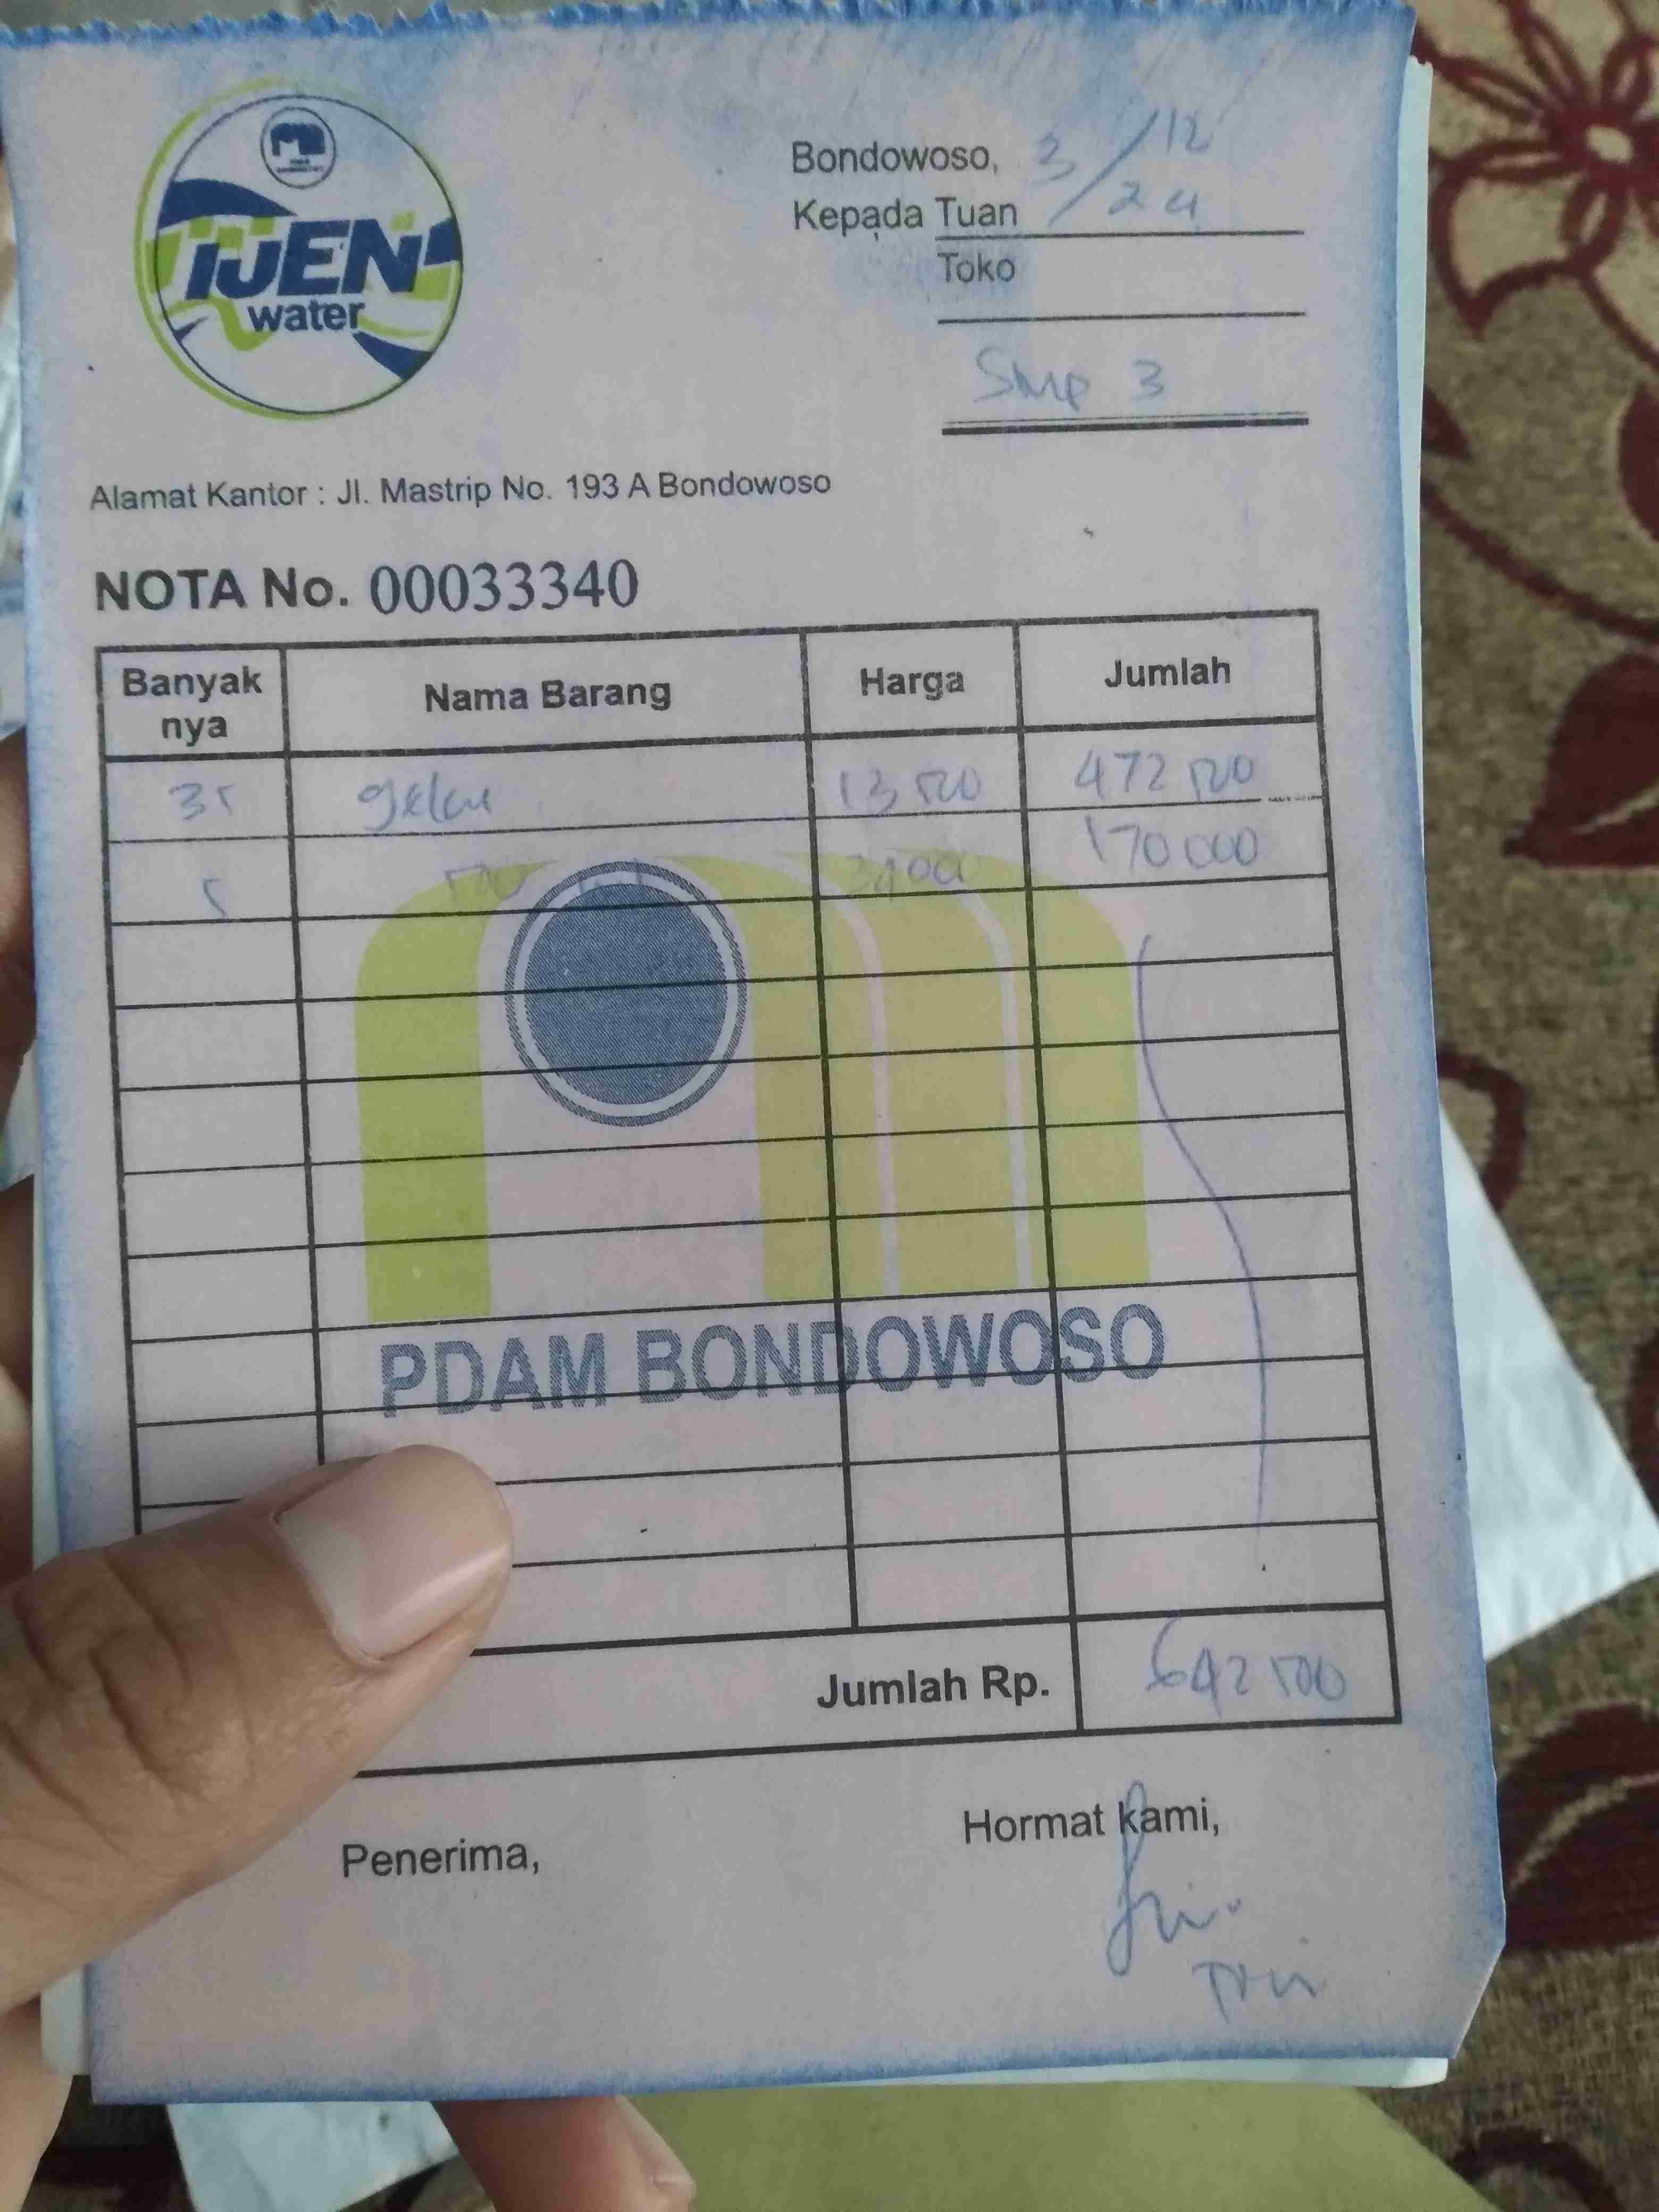 IJEN
water
Bondowoso, 3/12
24
Kepada Tuan
Toko
Smp 3
Alamat Kantor : Jl. Mastrip No. 193 A Bondowoso
NOTA No. 00033340
Banyak nya Nama Barang Harga Jumlah
35 gelas 13500 472500
5 34000 170000
PDAM BONDOWOSO
Jumlah Rp. 642500
Penerima,
Hormat kami,